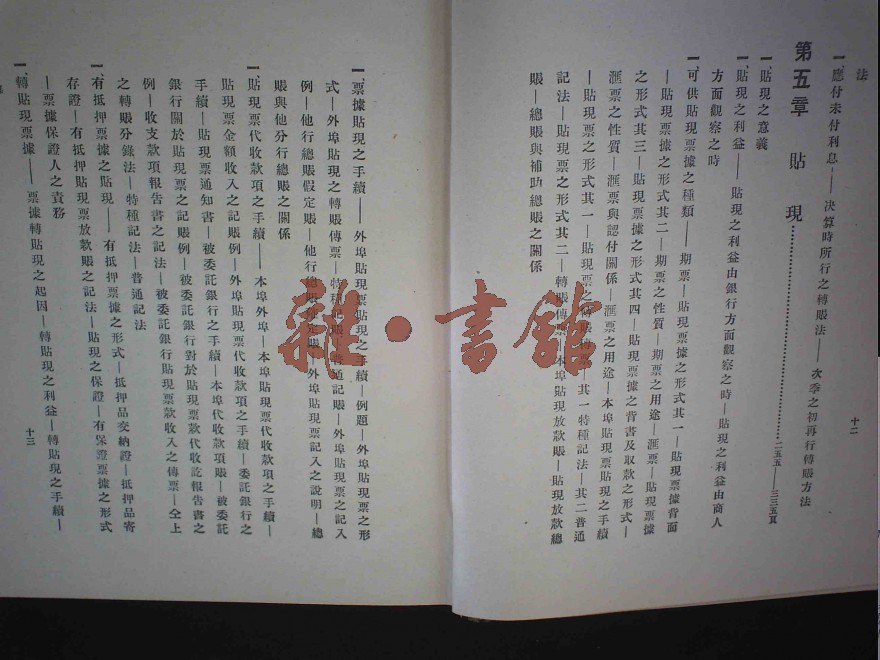 法
一、應付未付利息——決算時所行之轉賬法——次季之初再行轉賬方法
第五章 貼現……二五五—三三五頁
一、貼現之意義
一、貼現之利益——貼現之利益由銀行方面觀察之時—貼現之利益由商人
方面觀察之時
一、可供貼現票據之種類——期票—貼現票據之形式其一—貼現票據背面
—貼現票據之形式其二—期票之性質—期票之用途—滙票—貼現票據
之形式其三—貼現票據之形式其四—貼現票據之背書及取款之形式—
滙票之性質—滙票與認付關係—滙票之用途—本埠貼現票貼現之手續
—貼現票之形式其一—貼現票之轉賬傳票—其一特種記法—其二普通
記法—貼現票之形式其二—轉賬傳票—本埠貼現放款賬—貼現放款總
賬—總賬與補助總賬之關係
十二
一、票據貼現之手續—外埠貼現票貼現之手續—例題—外埠貼現票之形
式—外埠貼現之轉賬傳票—特種記賬—普通記賬—外埠貼現票之記入
例—他行總賬假定賬—他行總賬決定賬—外埠貼現票記入之說明—總
賬與他分行總賬之關係
一、貼現票代收款項之手續——本埠外埠—本埠貼現票代收款項之手續—
貼現票金額收入之記賬例—外埠貼現票代收款項之手續—委託銀行之
手續—貼現票通知書—被委託銀行之手續—本埠代收款項賬—被委託
銀行關於貼現票之記賬例—被委託銀行對於貼現票款代收訖報告書之
例—收支款項報告書之記法—被委託銀行貼現票款收入之傳票—仝上
之轉賬分錄法—特種記法—普通記法
一、有抵押票據之貼現——有抵押票據之形式—抵押品交納證—抵押品寄
存證—有抵押貼現票放款賬之記法—貼現之保證—有保證票據之形式
—票據保證人之責務
一、轉貼現票據——票據轉貼現之起因—轉貼現之利益—轉貼現之手續—
十三
雜·書館